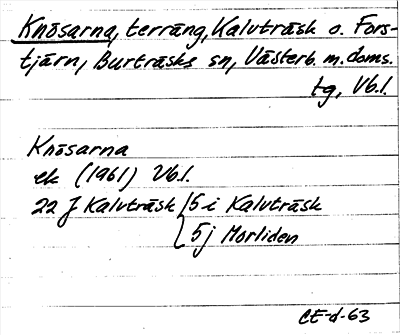 Knösarna, terräng, Kalvträsk o. Fors-
tjärn, Burträsks sn, Västerb. m. doms.
tg, Vb.l.
Knösarna
ek (1961) Vb.l.
22 J Kalvträsk 5 i Kalvträsk
5 j Morliden
CE-d-63